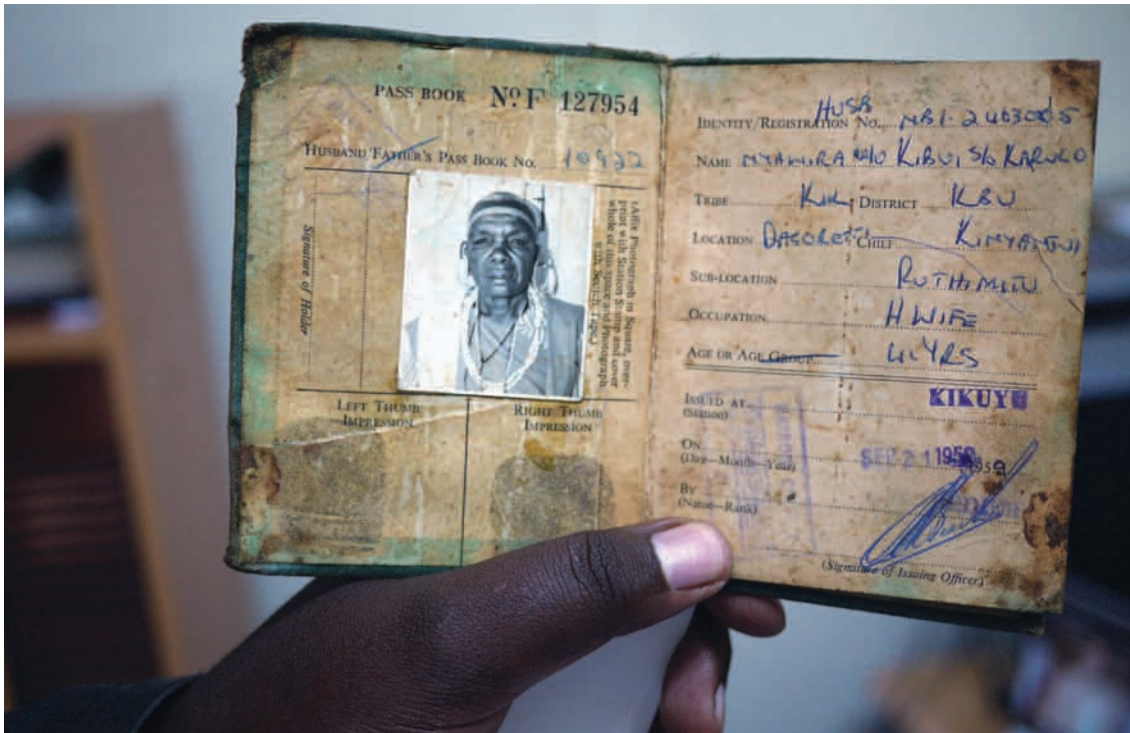 PASS BOOK No. F 127954
HUSBAND/FATHER'S PASS BOOK NO. 10922
Signature of Holder
(Affix Photograph in Square, over-
print with Station Stamp and cover
whole of this space and Photograph
with Scotch Tape.)
LEFT THUMB
IMPRESSION
RIGHT THUMB
IMPRESSION
HUSB
IDENTITY/REGISTRATION NO. NBI.
NAME NYAWIRA W/O KIBUI S/O KARUGO
TRIBE KIK. DISTRICT KBU
LOCATION DAGORETTI CHIEF KINYANJUI
SUB-LOCATION RUTHIMITU
OCCUPATION H WIFE
AGE OR AGE GROUP YRS
ISSUED AT KIKUYU
(Station)
ON SEP 21 1959 1959
(Day—Month—Year)
BY
(Name—Rank)
(Signature of Issuing Officer)